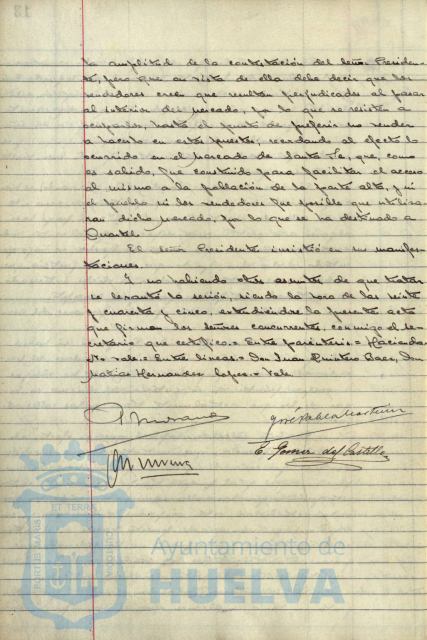 la amplitud de la contestación del Señor Presiden-
te, pero que en vista de ella debe decir que los
vendedores creen que resultan perjudicados al pasar
al interior del mercado, por lo que se resisten a
ocuparlo, hasta el punto de preferir no vender
a hacerlo en estos puestos, recordando al efecto lo
ocurrido en el mercado de Santa Fe, que, como
es sabido, fue construido para facilitar el acceso
al mismo a la población de la parte alta, y ni
el pueblo ni los vendedores fue posible que utiliza-
ran dicho mercado, por lo que se ha destinado a
Cuartel.
El Señor Presidente insistió en sus manifes-
taciones.
Y no habiendo otros asuntos de que tratar
se levantó la sesión, siendo la hora de las veinte
y cuarenta y cinco, extendiéndose la presente acta
que firman los señores concurrentes, conmigo el Se-
cretario que certifico.= Entre paréntesis = Hacienda
No vale.= Entre líneas.= Don Juan Quintero Baez, Don
Matías Hernandez Lopez.= Vale.
José Pablo
E. Gomez del Castillo
PORTUS MARIS ET TERRAE CUSTODIA
Ayuntamiento de
HUELVA